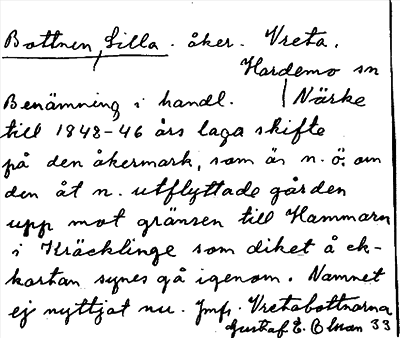 Bottnen, Lilla. åker. Vreta.
Hardemo sn
Benämning i handl. | Närke
till 1843-46 års laga skifte
på den åkermark, som är n.ö. om
den åt n. utflyttade gården
upp mot gränsen till Hammarn
i Kräcklinge som diket å ek-
kartan synes gå igenom. Namnet
ej nyttjat nu. Jmfr. Vretabottnarna
Gustaf E. Olsson 33